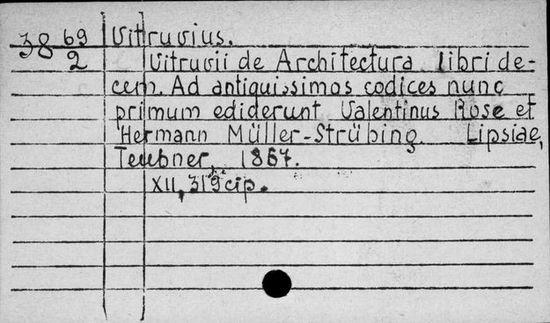 38 69 Vitruvius.
2 Vitruvii de Architectura libri de-
cem. Ad antiquissimos codices nunc
primum ediderunt Valentinus Rose et
Hermann Müller-Strübing. Lipsiae,
Teubner, 1867.
XII, 319 cip.